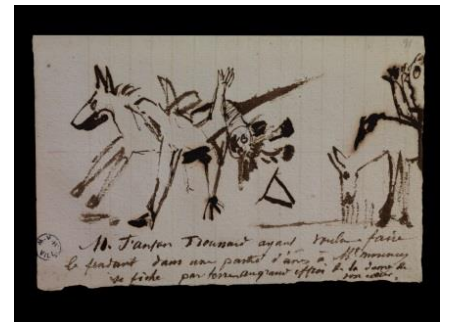 M. J'anfan Thonnard ayant voulu faire
le fendant dans une partie d'ânes à Mt morency
se fiche par terre au grand effroi de la dame de
son cœur.